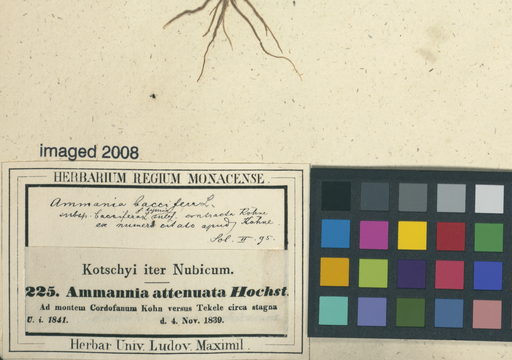 imaged 2008
HERBARIUM REGIUM MONACENSE.
Ammania baccifera L.
subsp. baccifera contracta Koehne
ex numero citato apud Koehne
Sol. II. 95.
Kotschyi iter Nubicum.
225. Ammannia attenuata Hochst.
Ad montem Cordofanum Kohn versus Tekele circa stagna
U. i. 1841. d. 4. Nov. 1839.
Herbar Univ. Ludov. Maximil.